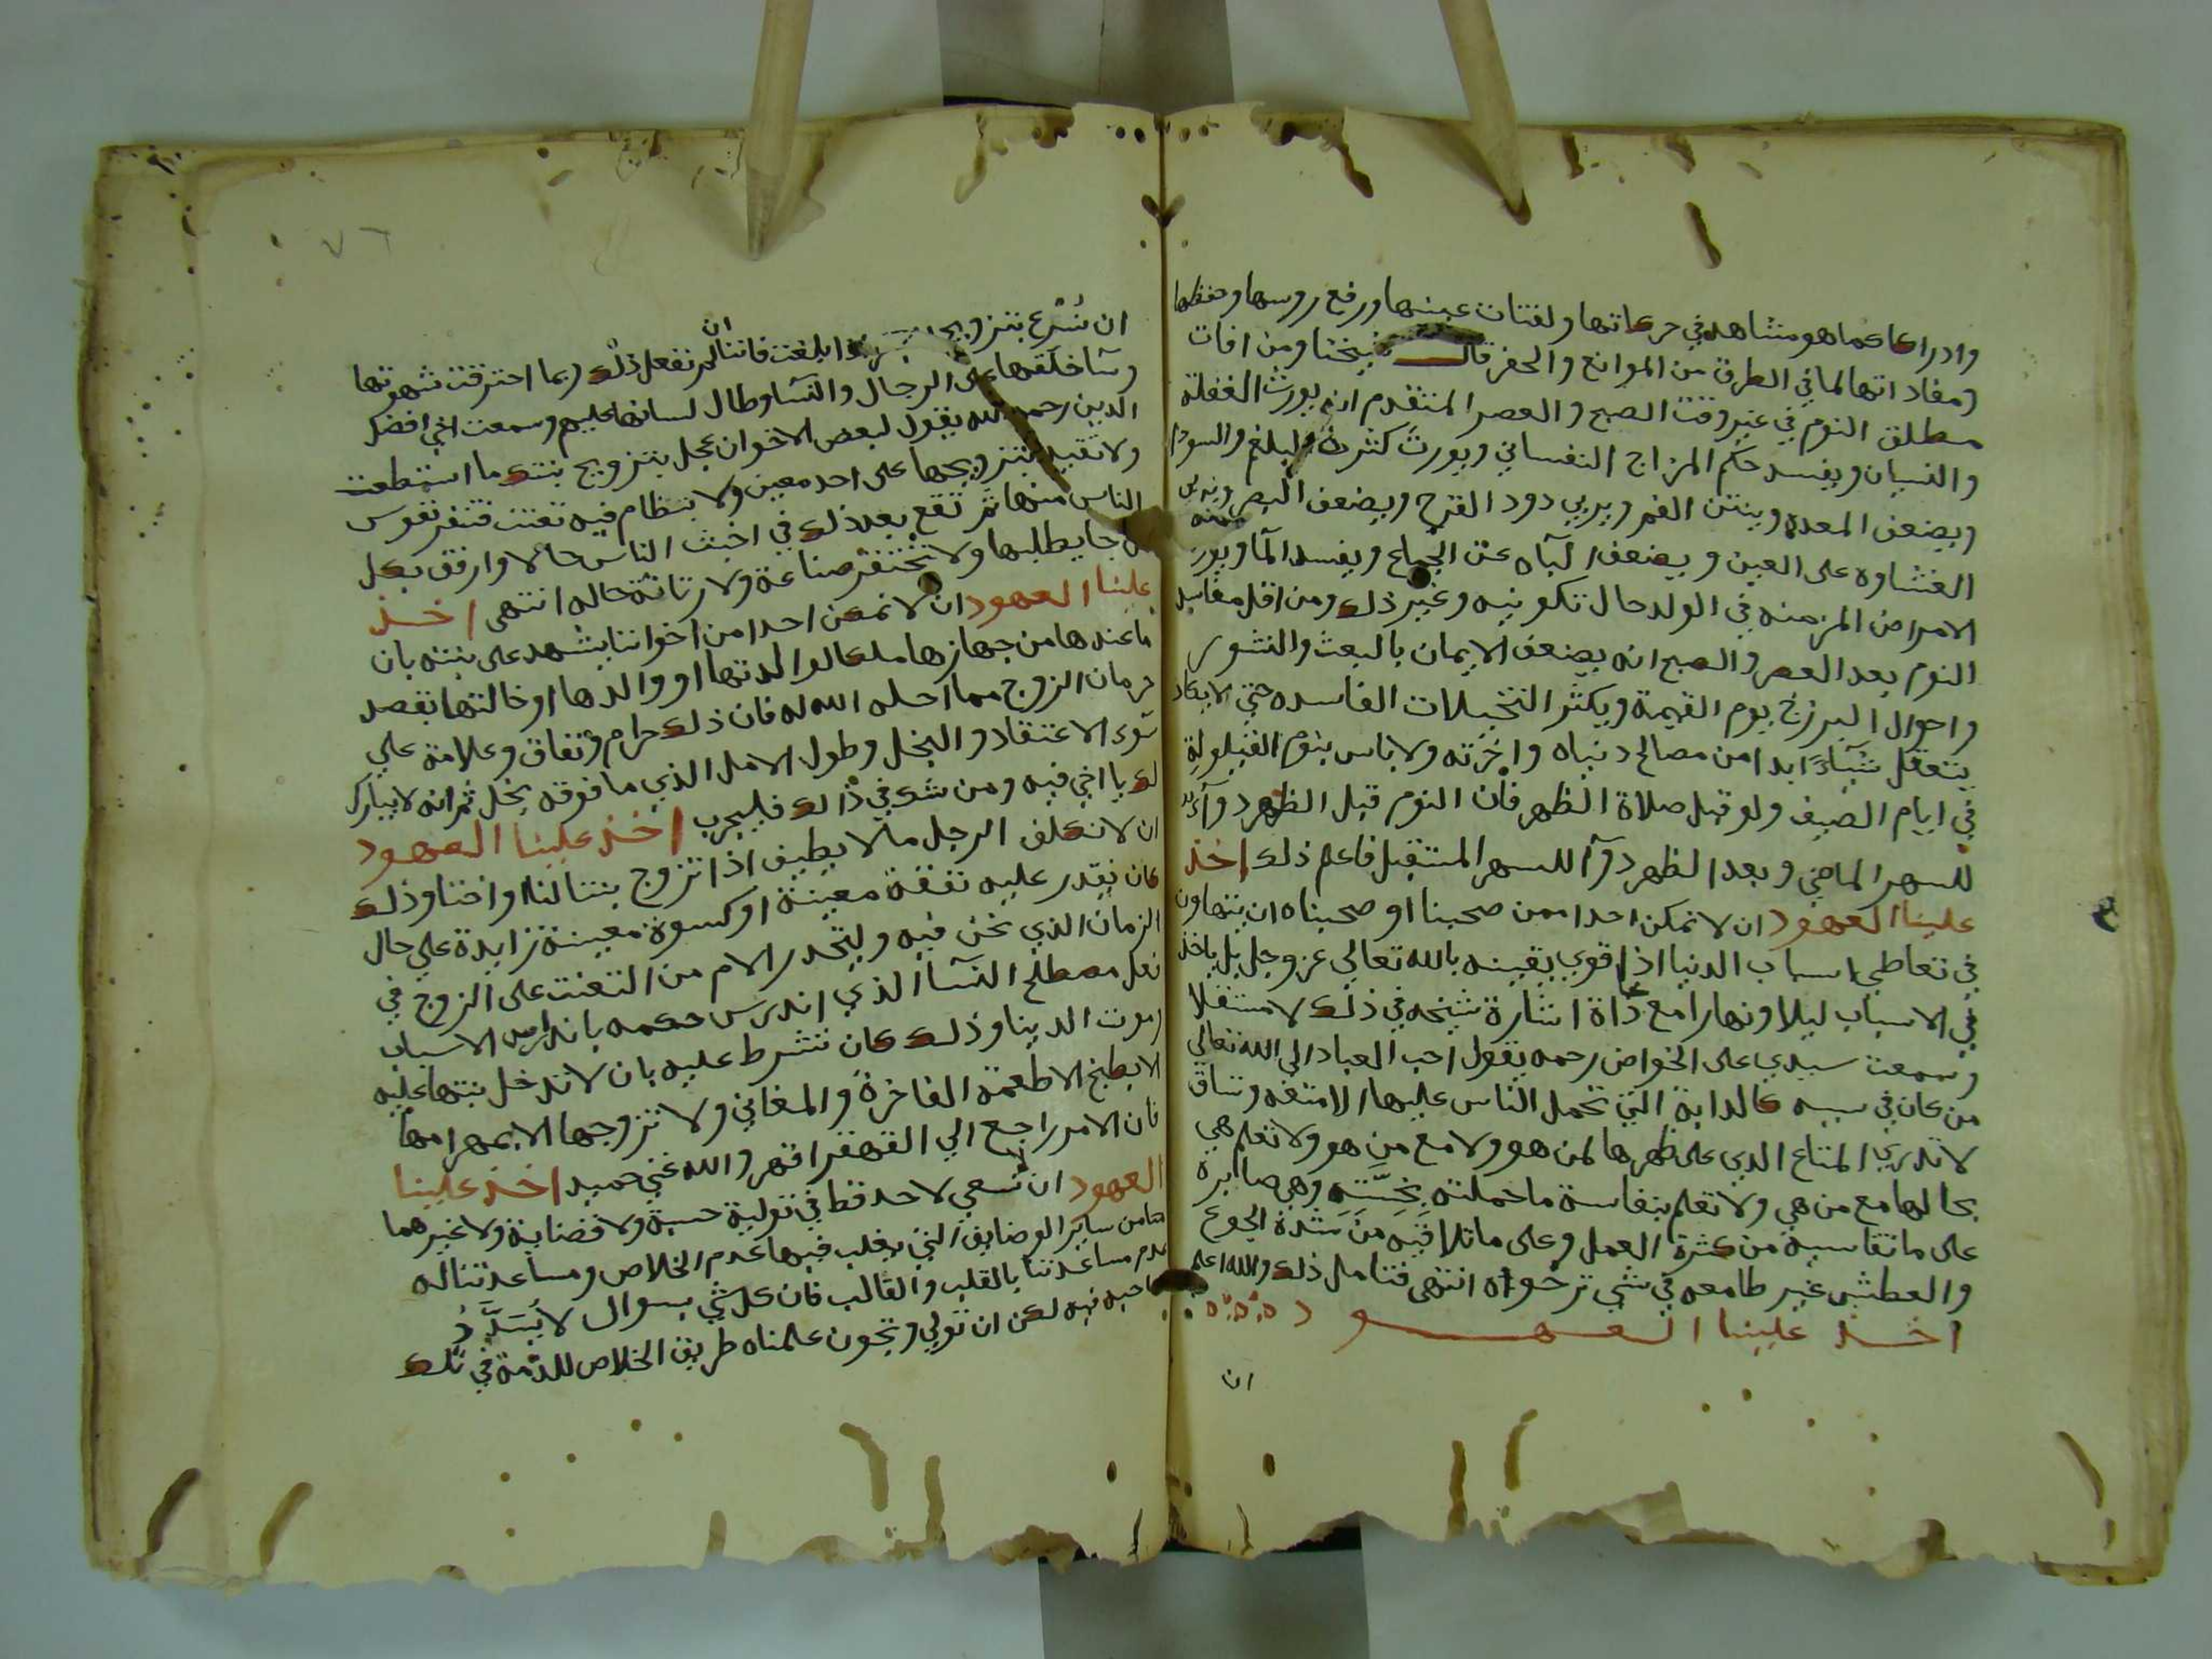 وادراكا كما هو مشاهد في حركاتها ولفتات عينها ورفع روسها وحفظها
ومفاداتها لما في الطرق من الموانع والحفر قال شيخنا ومن افات
مطلق النوم في غير وقت الصبح والعصر المتقدم انه يورث الغفلة
والنسيان ويفسد حكم المزاج النفساني ويورث كثرة البلغم والسودا
ويضعف المعده وينتن الفم ويربي دود القرح ويضعف البصر
الغشاوه على العين ويضعف الباه عن الجماع ويفسد الما ويورث
الامراض المزمنه في الولد حال تكوينه وغير ذلك ومن اقل مفاسد
النوم بعد العصر والصبح انه يضعف الايمان بالبعث والنشور
واحوال البرزخ يوم القيمة ويكثر التخيلات الفاسده حتي لا يكاد
يتعقل شيا ابدا من مصالح دنياه واخرته ولا باس بنوم القيلولة
في ايام الصيف ولو قبل صلاة الظهر فان النوم قبل الظهر دوآء
للسهر الماضي وبعد الظهر دوآ للسهر المستقبل فاعلم ذلك اخذ
علينا العهود ان لا نمكن احدا ممن صحبنا او صحبناه ان يتهاون
في تعاطي اسباب الدنيا اذا قوي يقينه بالله تعالي عز وجل بل ياخذ
في الاسباب ليلا ونهارا مع اشارة شيخه في ذلك لا مستقلا
وسمعت سيدي على الخواص رحمه يقول احب العباد الي الله تعالي
من كان في سببه كالدابة التي تحمل الناس عليها الامتعه وتساق
لا تدري المتاع الذي على ظهرها لمن هو ولا مع من هو ولا تعلم هي
بحالها مع من هي ولا تعلم بنفاسة ما حملته بخسته وهي صابرة
على ما تقاسيه من كثرة العمل وعلى ما تلاقيه من شدة الجوع
والعطش غير طامعه في شي ترخواه انتهى فتامل ذلك والله اعلم
اخذ علينا العهود
ان
٧٦
ان نسرع بتزويج اذا بلغت فاننا ان لم نفعل ذلك ربما احترقت شهوتها
وسآ خلقها على الرجال والنسآ وطال لسانها عليهم وسمعت اخي افضل
الدين رحمه الله يقول لبعض الاخوان عجل بتزويج بنتك ما استطعت
ولا تقيد بتزويجها على احد معين ولا بنظام فيه تعنت فتنفر نفوس
الناس منها ثم تقع بعد ذلك في اخبث الناس حالا وارفق بكل
من جا يطلبها ولا تحتقر صناعة ولا رثاثة حاله انتهى اخذ
علينا العهود ان لا نمكن احدا من اخواننا يشهد على بنته بان
ما عندها من جهازها ملكا لوالدتها او والدها او خالتها بقصد
حرمان الزوج مما احله الله له فان ذلك حرام ونفاق وعلامة علي
سوء الاعتقاد والبخل وطول الامل الذي ما فوقه بخل ثم انه لا يبارك
لك يا اخي فيه ومن شك في ذالك فليجرب اخذ علينا العهود
ان لا نكلف الرجل مالا يطيق اذا تزوج بنتا لنا او اختا وذلك
كان نقدر عليه نفقة معينة او كسوة معينة زايدة علي حال
الزمان الذي نحن فيه وليحذر الام من التعنت على الزوج في
فعل مصطلح النسآ الذي اندرس حكمه باندراس الاسباب
امور الدينا وذلك كان تشرط عليه بان لا تدخل بنتها عليه
الا بطبخ الاطعمة الفاخرة والمغاني ولا تزوجها الا بمهر امها
فان الامر راجع الي القهقرا قهر والله غني حميد اخذ علينا
العهود ان نسعي لاحد قط في تولية حسبة ولا قضاية ولا غيرهما
من ساير الوضايق التي يغلب فيها عدم الخلاص ومساعدتنا له
عدم مساعدتنا بالقلب والقالب فان كل شي بسوال لا يسدد
صاحبه فيه لكن ان تولي ويحون علمناه طريق الخلاص للذمة في تلك